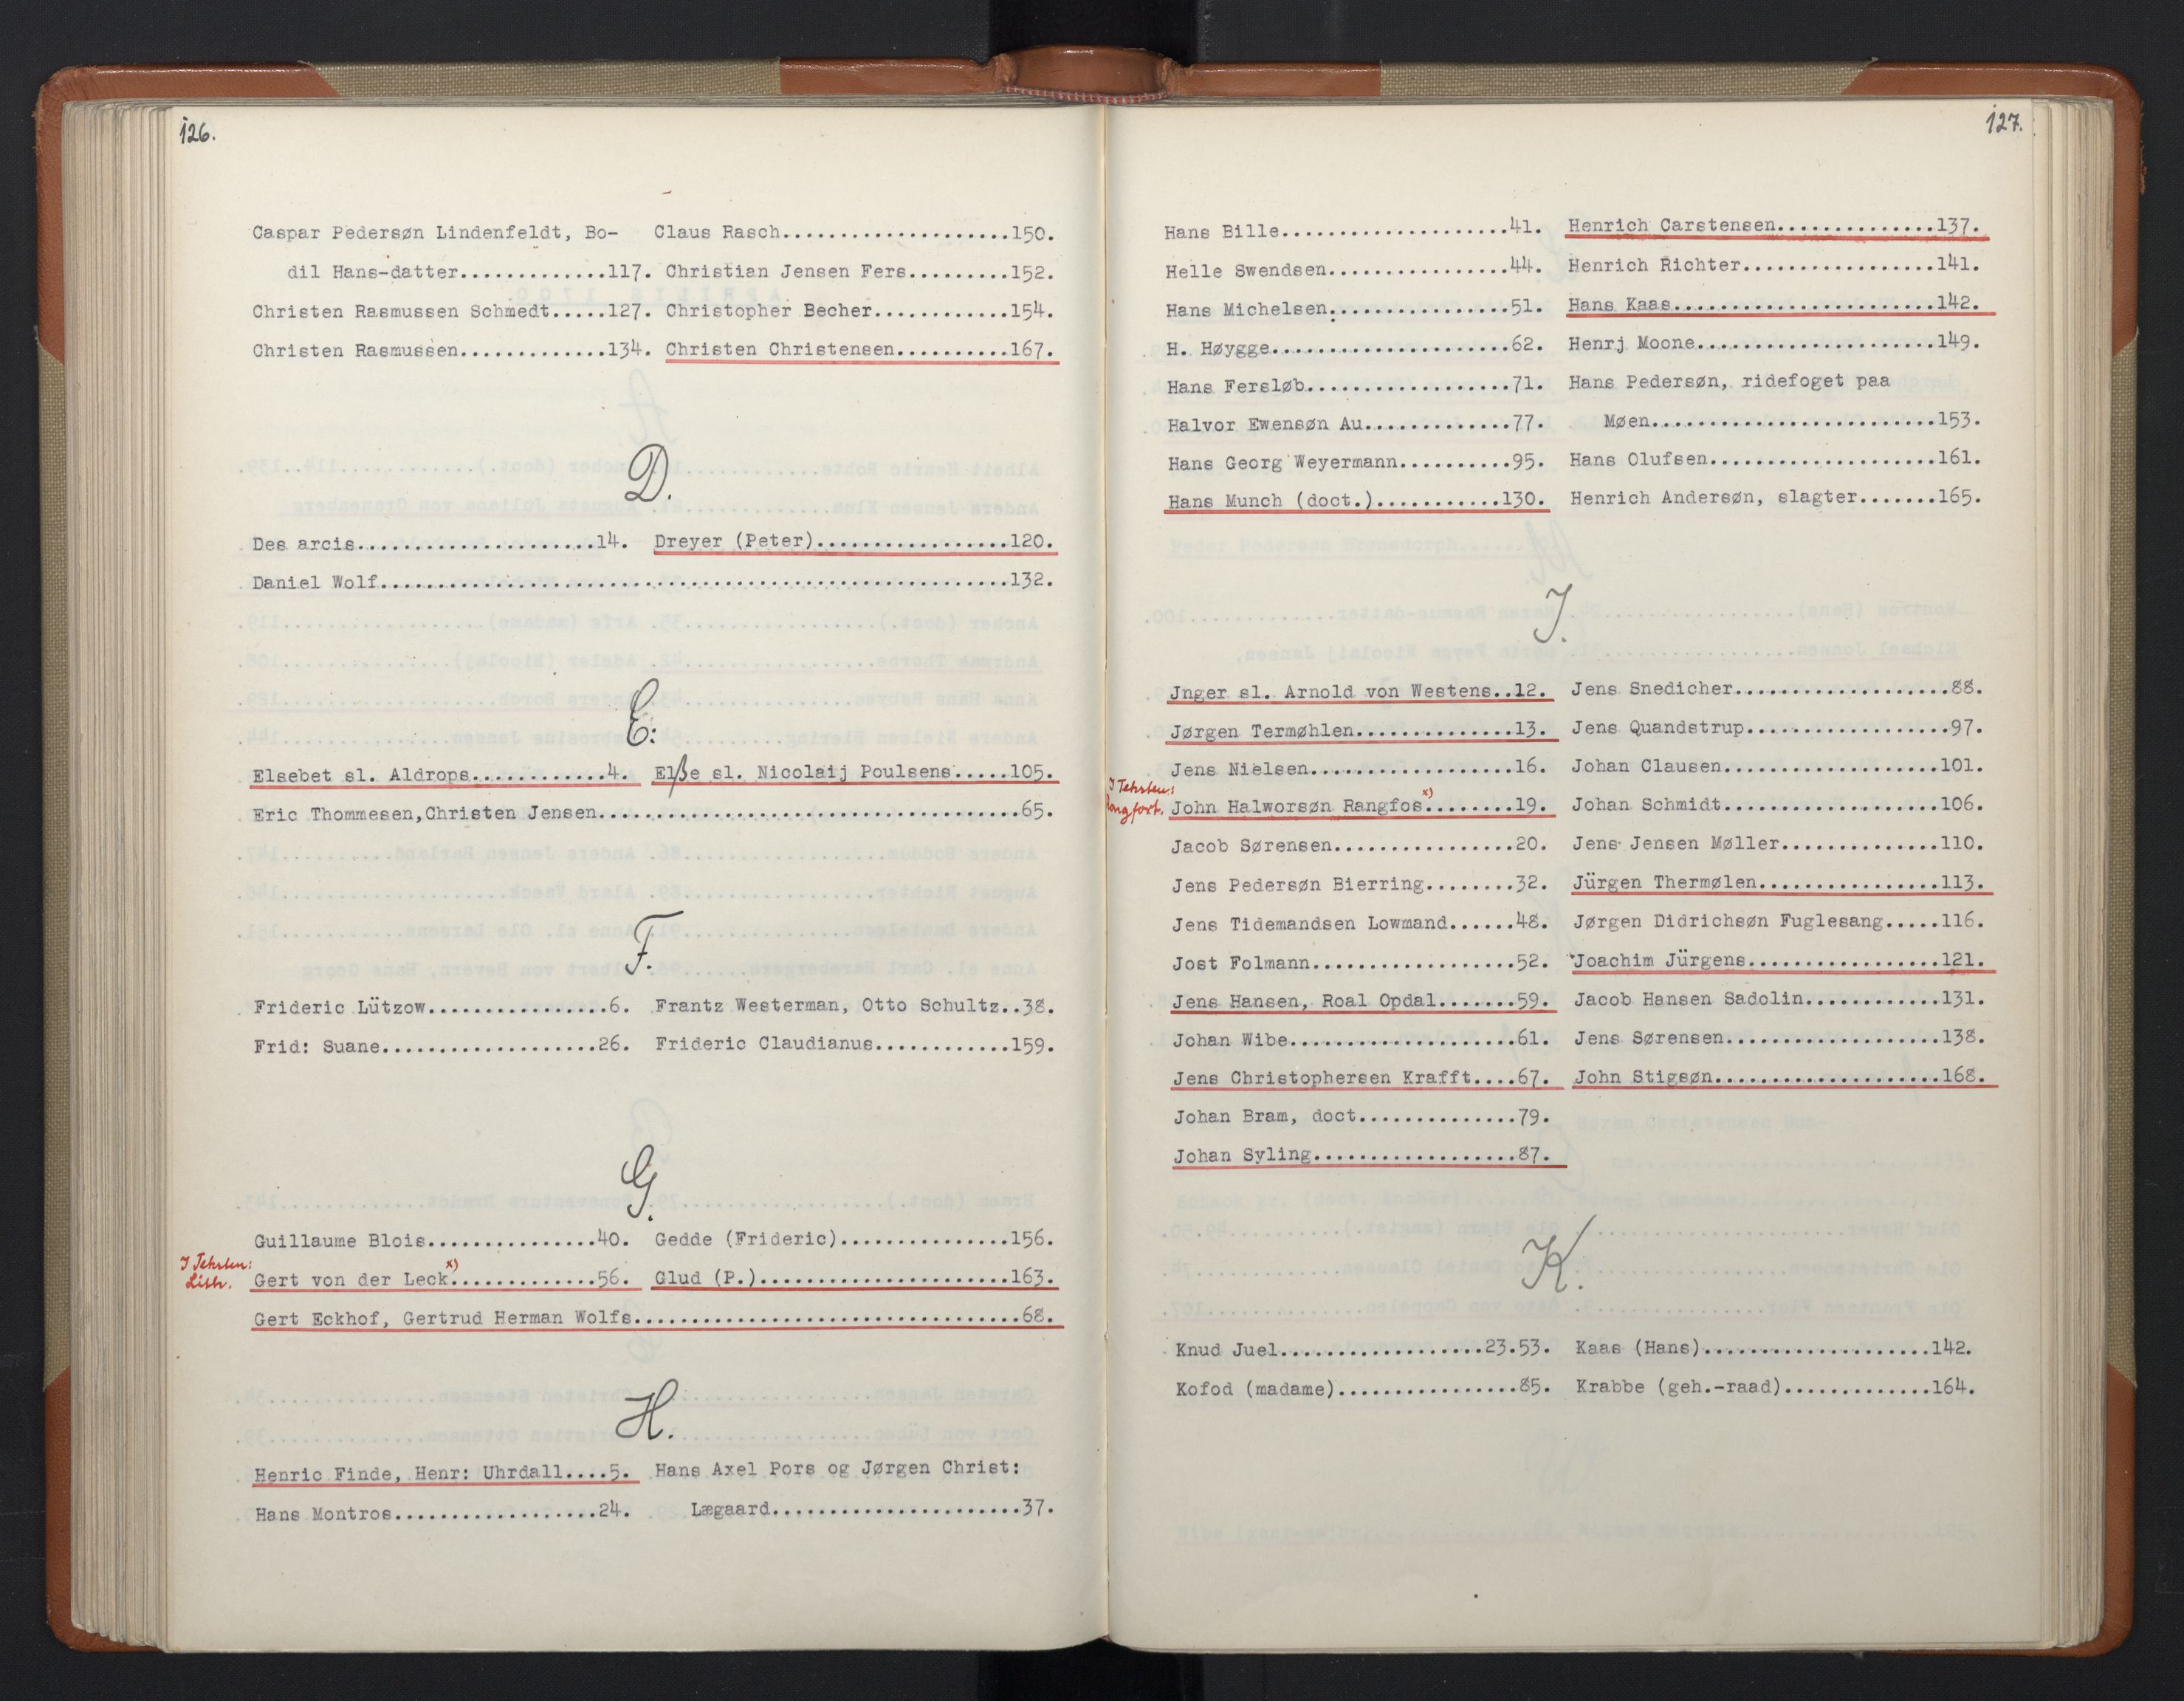 126.
Caspar Pedersøn Lindenfeldt, Bo-
dil Hans-datter.............117.
Christen Rasmussen Schmedt.....127.
Christen Rasmussen.............134.
Claus Rasch....................150.
Christian Jensen Fers.........152.
Christopher Becher............154.
Christen Christensen..........167.
D.
Des arcis.....................14. Dreyer (Peter).................120.
Daniel Wolf.......................................................132.
E:
Elsebet sl. Aldrops............4. Elße sl. Nicolaij Poulsens.....105.
Eric Thommesen,Christen Jensen.....................................65.
F.
Frideric Lützow................6. Frantz Westerman, Otto Schultz..38.
Frid: Suane...................26. Frideric Claudianus............159.
G.
Guillaume Blois...............40. Gedde (Frideric)...............156.
I Teksten:
Lith.
Gert von der Leck x).............56. Glud (P.)......................163.
Gert Eckhof, Gertrud Herman Wolfs..................................68.
H.
Henric Finde, Henr: Uhrdall....5. Hans Axel Pors og Jørgen Christ:
Hans Montros..................24. Lægaard......................37.
127.
Hans Bille....................41.
Helle Swendsen................44.
Hans Michelsen................51.
H. Høygge.....................62.
Hans Fersløb..................71.
Halvor Ewensøn Au.............77.
Hans Georg Weyermann..........95.
Hans Munch (doct.)...........130.
Henrich Carstensen..............137.
Henrich Richter.................141.
Hans Kaas.......................142.
Henrj Moone.....................149.
Hans Pedersøn, ridefoget paa
Møen.........................153.
Hans Olufsen....................161.
Henrich Andersøn, slagter.......165.
J.
Jnger sl. Arnold von Westens..12.
Jørgen Termøhlen..............13.
Jens Nielsen..................16.
I Teksten:
Langfort.
John Halworsøn Rangfos x)........19.
Jacob Sørensen................20.
Jens Pedersøn Bierring........32.
Jens Tidemandsen Lowmand......48.
Jost Folmann..................52.
Jens Hansen, Roal Opdal.......59.
Johan Wibe....................61.
Jens Christophersen Krafft....67.
Johan Bram, doct..............79.
Johan Syling..................87.
Jens Snedicher...................88.
Jens Quandstrup..................97.
Johan Clausen...................101.
Johan Schmidt...................106.
Jens Jensen Møller..............110.
Jürgen Thermølen................113.
Jørgen Didrichsøn Fuglesang.....116.
Joachim Jürgens.................121.
Jacob Hansen Sadolin............131.
Jens Sørensen...................138.
John Stigsøn....................168.
K.
Knud Juel..................23.53. Kaas (Hans)....................142.
Kofod (madame)................85. Krabbe (geh.-raad).............164.